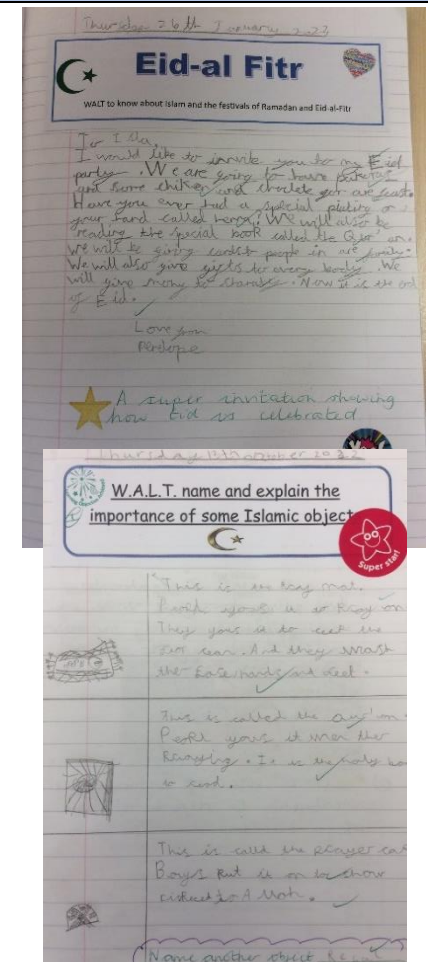 Thursday 26th January 2023
Eid-al Fitr
WALT to know about Islam and the festivals of Ramadan and Eid-al-Fitr
To Isla,
I would like to invite you to my Eid
party. We are going to have
and some chiken and choclete for are feast.
Have you ever had a special
your hand called henna? We will also be
reading the special book called the Qur'an.
we will be giving cards people in are family.
We will also give gifts to every body. We
will give money to . Now it is the end
of Eid.
Love from
Penelope
A super invitation showing
how Eid is celebrated
Thursday
W.A.L.T. name and explain the
importance of some Islamic object
Super star!
This is the Pray mat.
yous it to Pray on
They yous it to
. And they wash
the hands and feet.
This is called the Qur'an
yous it when
. It is the holy
to read.
This is calld the Prayer
Boys Put it on to show
to Allah.
Name another object